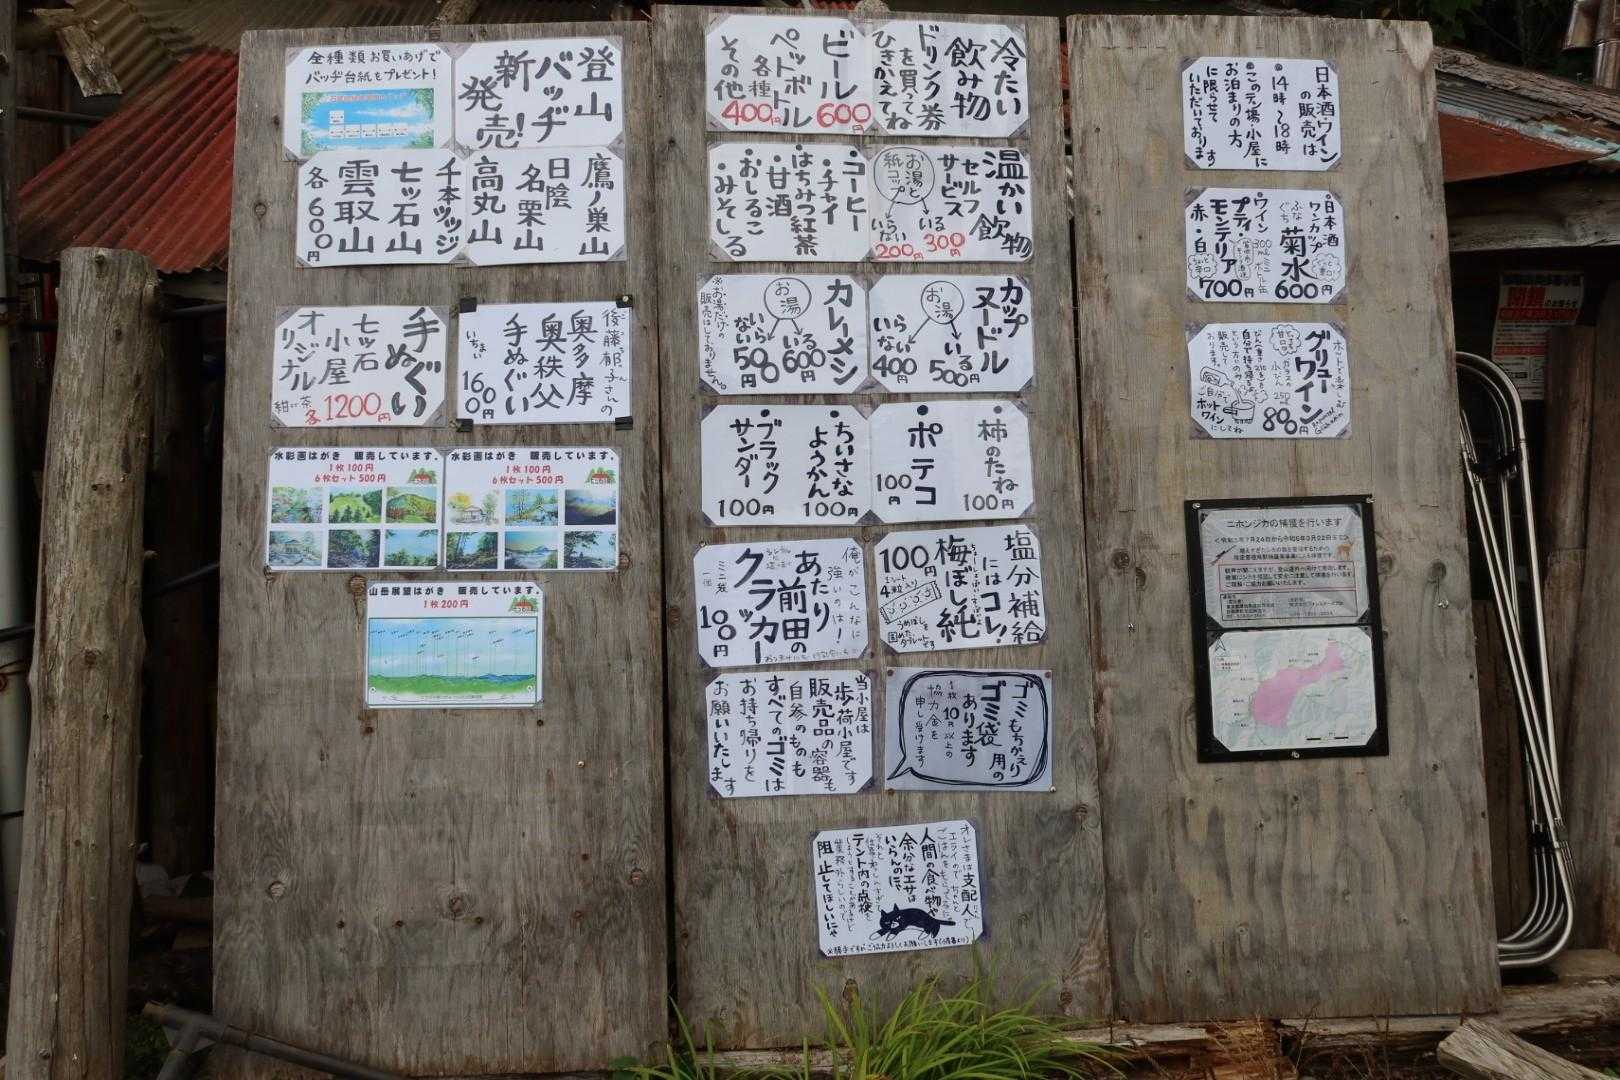 全種類お買いあげで
バッヂ台紙をプレゼント!
登山
バッヂ
新
発売!
鷹ノ巣山
日陰
名栗山
高丸山
千本ツツジ
七ッ石山
雲取山
各600円
手ぬぐい
七ッ石
小屋
オリジナル
紺 茶
各1200円
後藤郁子さんの
奥多摩
奥秩父
手ぬぐい
いちまい
1600円
水彩画はがき 販売しています。
1枚100円
6枚セット500円
水彩画はがき 販売しています。
1枚100円
6枚セット500円
山岳展望はがき 販売しています。
1枚200円
冷たい
飲み物
ドリンク券
を買ってね
ひきかえてね
ビール 600円
ペットボトル
各種
その他 400円
温かい飲物
セルフ
サービス
お湯と
紙コップ
いる 300円
いらない 200円
・コーヒー
・チャイ
・はちみつ紅茶
・甘酒
・おしるこ
・みそしる
カップ
ヌードル
お湯
いる 500円
いらない 400円
カレーメシ
お湯
いる 600円
いらない 500円
※お湯だけの
販売はしておりません。
・柿のたね
100円
・ポテコ
100円
・ちいさな
ようかん
100円
・ブラック
サンダー
100円
塩分補給
にはコレ!
梅ぼし純
100円
1シート
4粒入り
うめぼしを
固めた
タブレットです
俺がこんなに
強いのは!
あたり
前田の
クラッカー
ミニ袋
一個
100円
ゴミもちかえり
用の
ゴミ袋
あります
1枚10円以上の
協力金を
申し受けます
当小屋は
歩荷小屋です
販売品の容器も
自参のものも
すべてのゴミは
お持ち帰りを
お願いいたします
オレさまは支配人
エライので ちゃんと
ごはんをもらってる
人間の食べ物や
余分なエサは
いらんのにゃ
テント内の点検を
阻止してほしいにゃ
日本酒ワイン
の販売は
14時〜18時
このテン場小屋に
お泊まりの方
に限らせて
いただいております
・日本酒
ワンカップ
ふなぐち
菊水
600円
・ワイン
300mlミニボトル缶
プティ・
モンテリア
赤・白
700円
ホットで楽しむ
グリューワイン
小びん
250ml
800円
ご自分で
ホット
ワイン
にしてね
ニホンジカの捕獲を行います